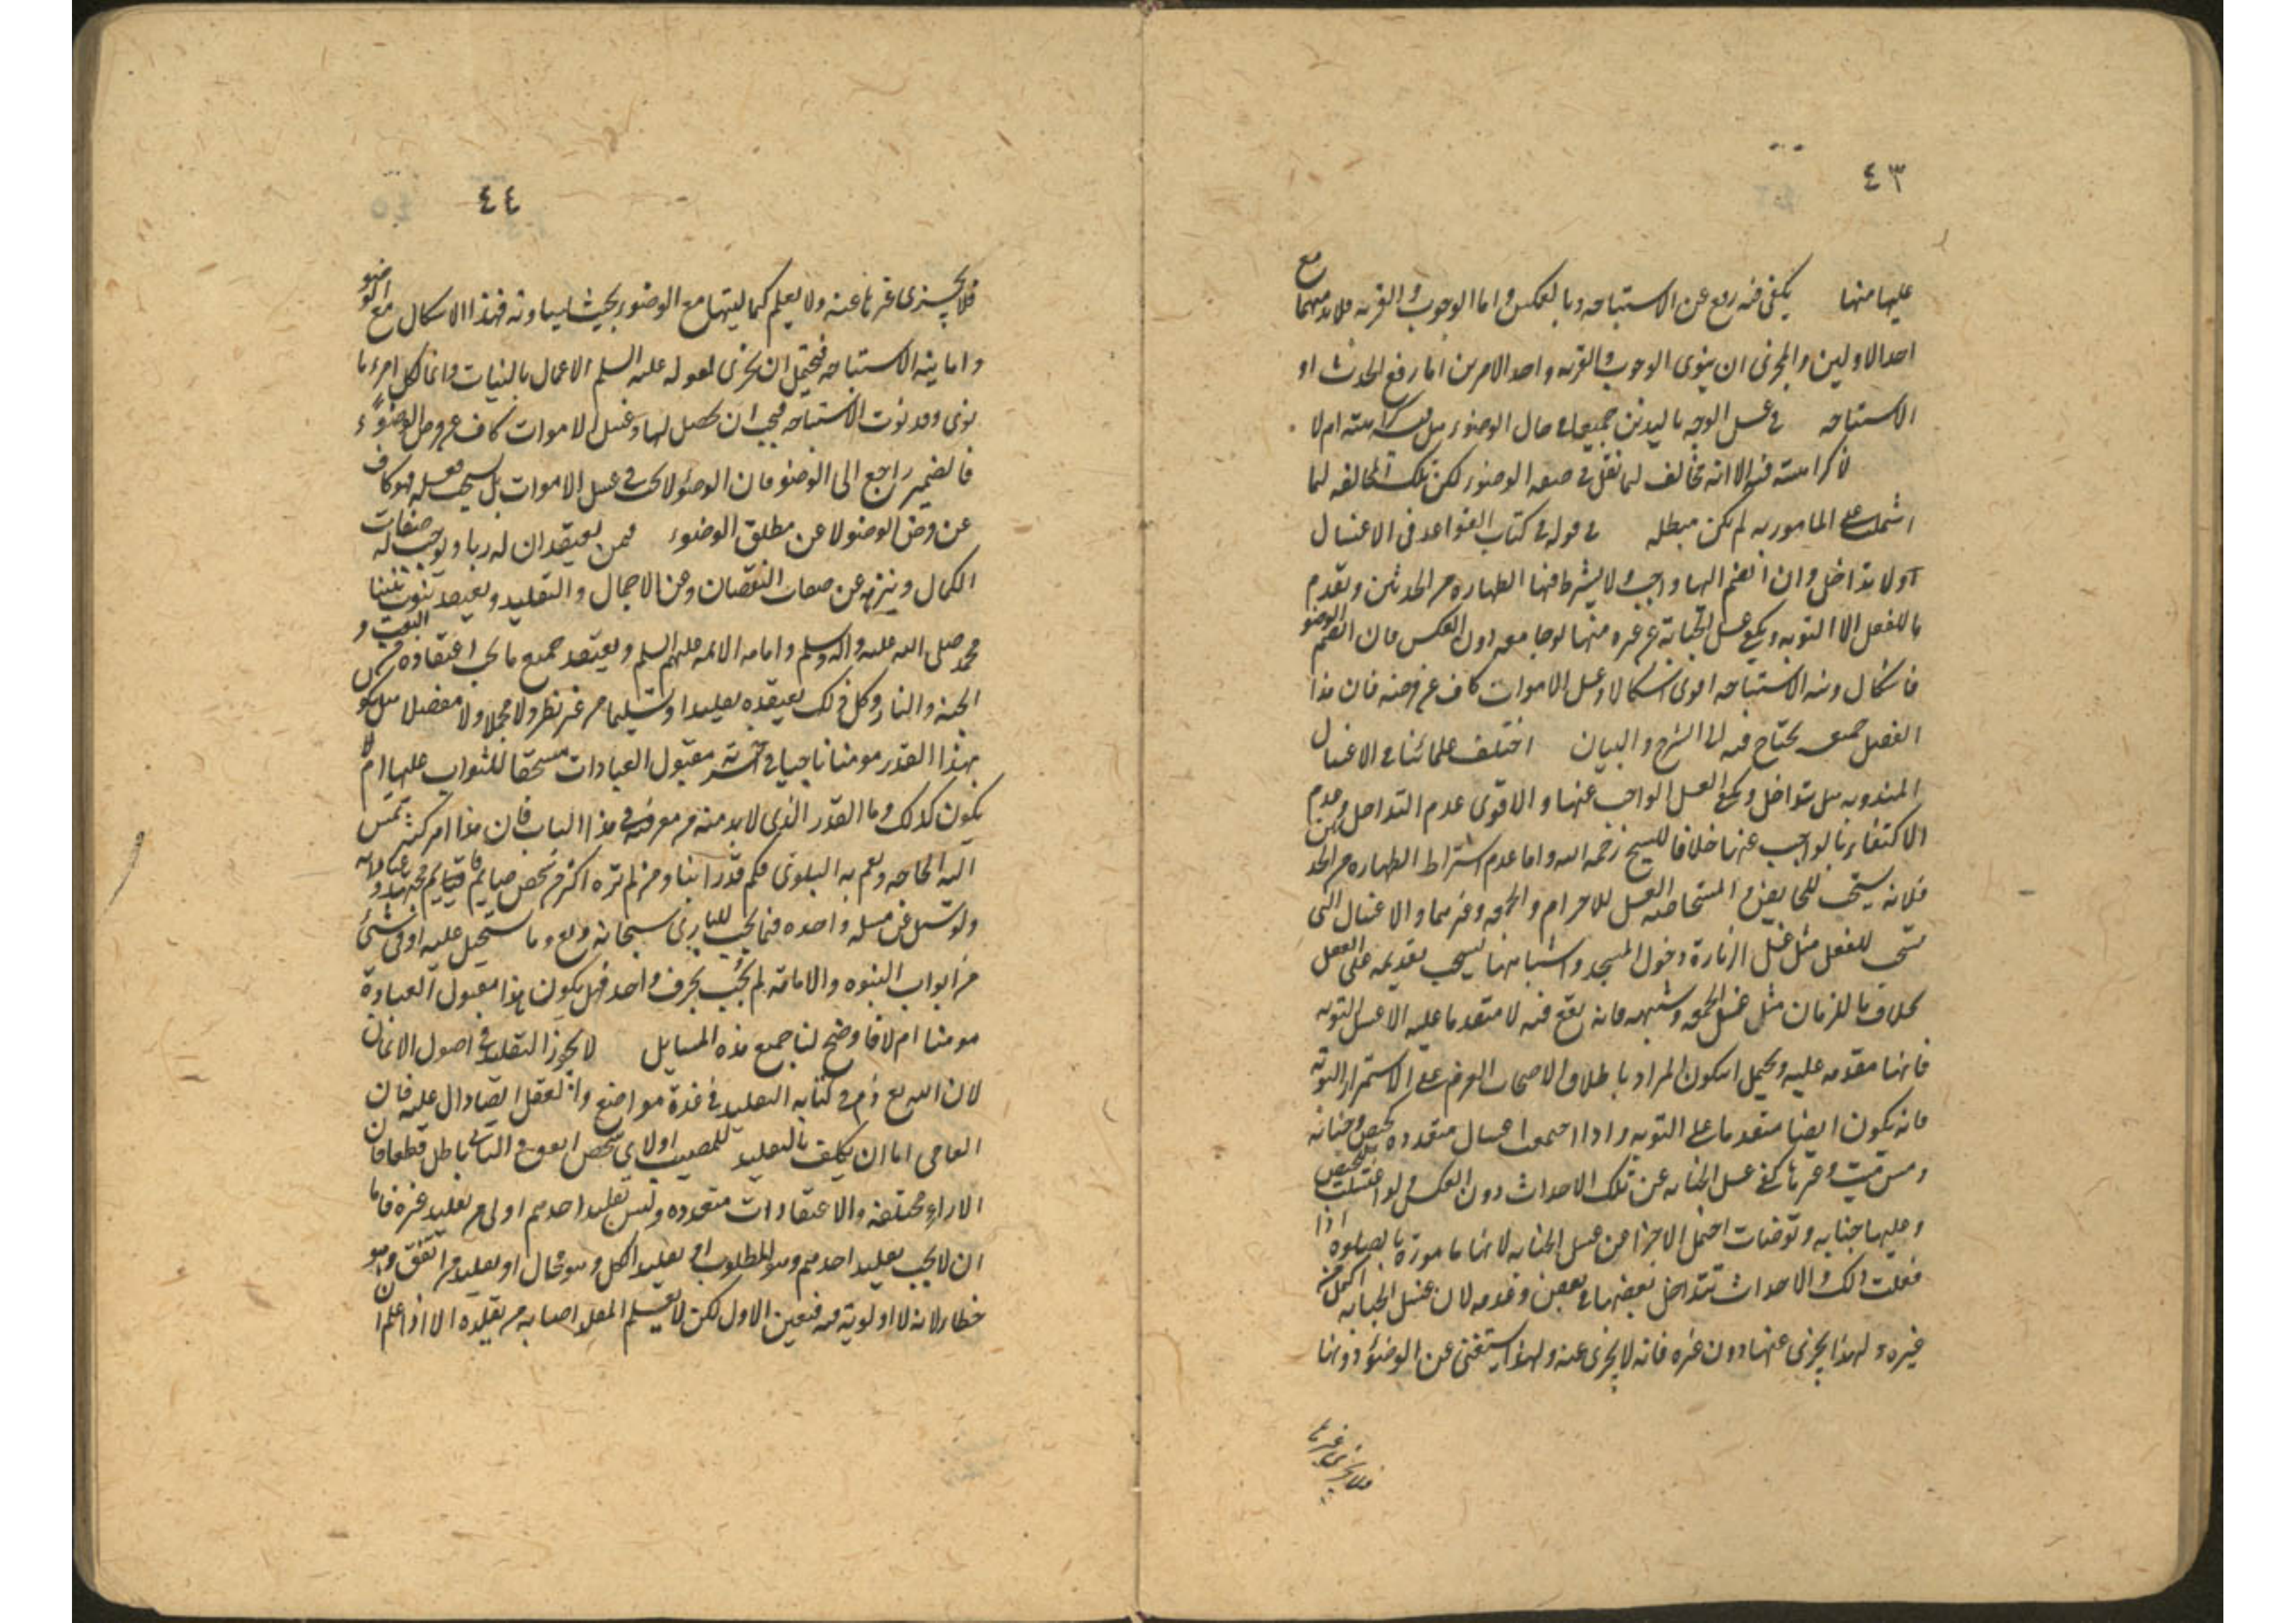 ٤٣
عليها منها يكفى فيه رفع عن الاستباحه وبالعكس واما الوجوب والقربه فلابد منهما مع
احد الاولين والمجزى ان ينوى الوجوب والقربه واحد الامرين اما رفع الحدث او
الاستباحه فى غسل الوجه باليدين جميعا فى حال الوضوء هل فيه كراهته ام لا
لا كراهته فيه الا انه مخالف لما نقل فى صفه الوضوء لكن تلك المخالفه لما
اشتملت على المامور به لم يكن مبطله فى قوله فى كتاب القواعد فى الاغسال
ولا تداخل وان انضم اليها واجب ولا يشترط فيها الطهاره من الحدثين ويقدم
ما للفعل الا التوبه ويكفى غسل الجنابة عن غيره منها لو جامعه دون العكس فان انضم الوضوء
فاشكال ونيه الاستباحه اقوى اشكالا وغسل الاموات كاف عن فرضه فان هذا
الفصل جميعه يحتاج فيه الى الشرح والبيان اختلف علمائنا فى الاغسال
المندوبه هل تتداخل ويكفى الغسل الواجب عنها والاقوى عدم التداخل وعدم
الاكتفاء بالواجب عنها خلافا للشيخ رحمه الله واما عدم اشتراط الطهاره من الحدثين
فلانه يستحب للحايض والمستحاضه الغسل للاحرام والجمعه وغيرهما والاغسال التى
تستحب للفعل مثل غسل الزيارة ودخول المسجد واشباهها يستحب تقديمه على الفعل
بخلاف ما للزمان مثل غسل الجمعه وشبهه فانه يقع فيه لا متقدما عليه الا غسل التوبه
فانها مقدمه عليه ويحتمل ان يكون المراد باطلاق الاصحاب العزم على الاستمرار التوبه
فانه يكون ايضا متقدما على التوبه واذا اجتمعت اغسال متعدده كحيض وجنابه
ومس ميت وغيرها كفى غسل الجنابه عن تلك الاحداث دون العكس ولو اغتسلت للحيض
وعليها جنابه وتوضات احتمل الاجزا عن غسل الجنابه لانها مامورة بالصلوه اذا
فعلت ذلك والاحداث تتداخل بعضها فى بعض وعدمه لان غسل الجنابه اكمل من
غيره ولهذا يجزى عنها دون غيره فانه لا يجزى عنه ولهذا يستغنى عن الوضوء دونها
فلا يجزى غيرها
٤٤
فلا يجزى غيرها عنه ولا يعلم كماليتها مع الوضوء بحيث يساويه فهذا الاشكال مع الوضوء
واما نيه الاستباحه فيحتمل ان يجزى لقوله عليه السلم الاعمال بالنيات وانما لكل امرء ما
نوى وقد نوت الاستباحه فيجب ان يحصل لها وغسل الاموات كاف عن فرض الوضوء
فالضمير راجع الى الوضو فان الوضوء لا يجب فى غسل الاموات بل يستحب فعله فهو كاف
عن فرض الوضو لا عن مطلق الوضوء فيمن يعتقد ان له ربا ويوجب له صفات
الكمال وينزهه عن صفات النقصان وعن الاجمال والتقليد ويعتقد بنبوت نبينا
محمد صلى الله عليه واله وسلم وامامه الائمه عليهم السلم ويعتقد جميع ما يجب اعتقاده من البعث و
الجنه والنار وكل ذلك يعتقده تقليدا وتسليما من غير نظر ولا مجملا ولا مفصلا هل يكو
بهذا القدر مومنا ناجيا فى آخرته مقبول العبادات مستحقا للثواب عليها ام لا
يكون كذلك وما القدر الذى لابد منه من معرفه فى هذا الباب فان هذا امر كثير تمس
اليه الحاجه ويعم به البلوى فكم قد راينا ومن لم نره اكثر من شخص صايم قايم مجتهد
ولو سئل عن مسله واحده فيما يجب للبارى سبحانه وتع وما يستحيل عليه او فى شئ
من ابواب النبوه والامامة لم يجب بحرف واحد فهل يكون هذا مقبول العبادة
مومنا ام لا فاوضح لنا جميع هذه المسايل لا يجوز التقليد فى اصول الايمان
لان الله تع ذم فى كتابه التقليد فى عدة مواضع والعقل ايضا دال عليه فان
العامى اما ان يكلف بالتقليد للمصيب او لاى شخص اتفق والثانى باطل قطعا فان
الاراء مختلفه والاعتقادات متعدده وليس تقليد احدهم اولى من تقليد غيره فاما
ان لا يجب تقليد احدهم وهو المطلوب او تقليد الكل وهو محال او تقليد من اتفق وهو
خطا لانه لا اولوية فيه فتعين الاول لكن لا يعلم المقلد اصابه من يقلده الا اذا علم ان